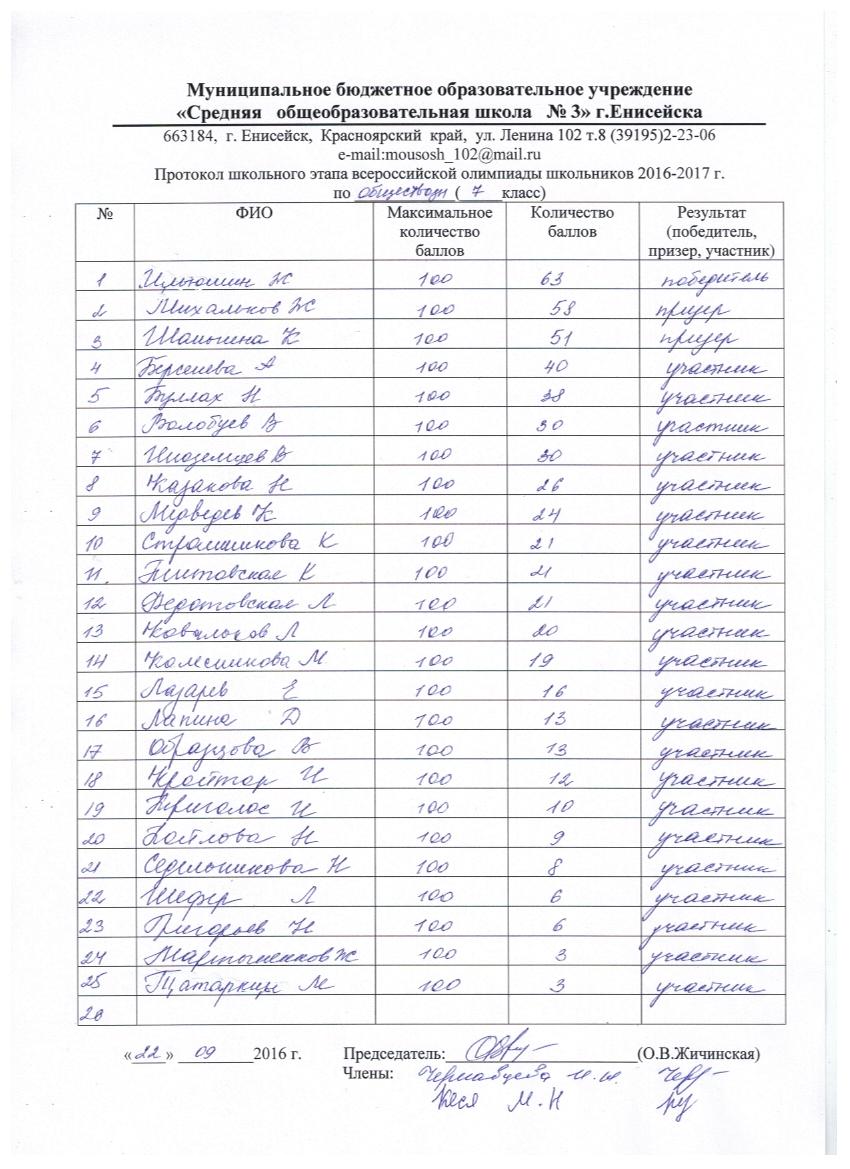 Муниципальное бюджетное образовательное учреждение
«Средняя общеобразовательная школа № 3» г.Енисейска
663184, г. Енисейск, Красноярский край, ул. Ленина 102 т.8 (39195)2-23-06
e-mail:mousosh_102@mail.ru
Протокол школьного этапа всероссийской олимпиады школьников 2016-2017 г.
по обществозн ( 7 класс)
№ ФИО Максимальное количество баллов Количество баллов Результат (победитель, призер, участник)
1 Ж 100 63 победитель
2 Михальков Ж 100 58 призер
3 Шаньгина К 100 51 призер
4 Берсенева А 100 40 участник
5 Буллах Н 100 38 участник
6 Волобуев В 100 30 участник
7 Иноземцев В 100 30 участник
8 Казакова Н 100 26 участник
9 Медведев К 100 24 участник
10 К 100 21 участник
11. К 100 21 участник
12 Федотовская Л 100 21 участник
13 Ковальков Л 100 20 участник
14 Колесникова М 100 19 участник
15 Лазарев Е 100 16 участник
16 Лапина Д 100 13 участник
17 Образцова В 100 13 участник
18 Кройтор И 100 12 участник
19 И 100 10 участник
20 Н 100 9 участник
21 Седельникова Н 100 8 участник
22 Шефер Л 100 6 участник
23 Григорьев Н 100 6 участник
24 Мартыненков Ж 100 3 участник
25 М 100 3 участник
26
«22» 09 2016 г. Председатель: (О.В.Жичинская)
Члены: Чернавцева И.И.
Кеся М.Н